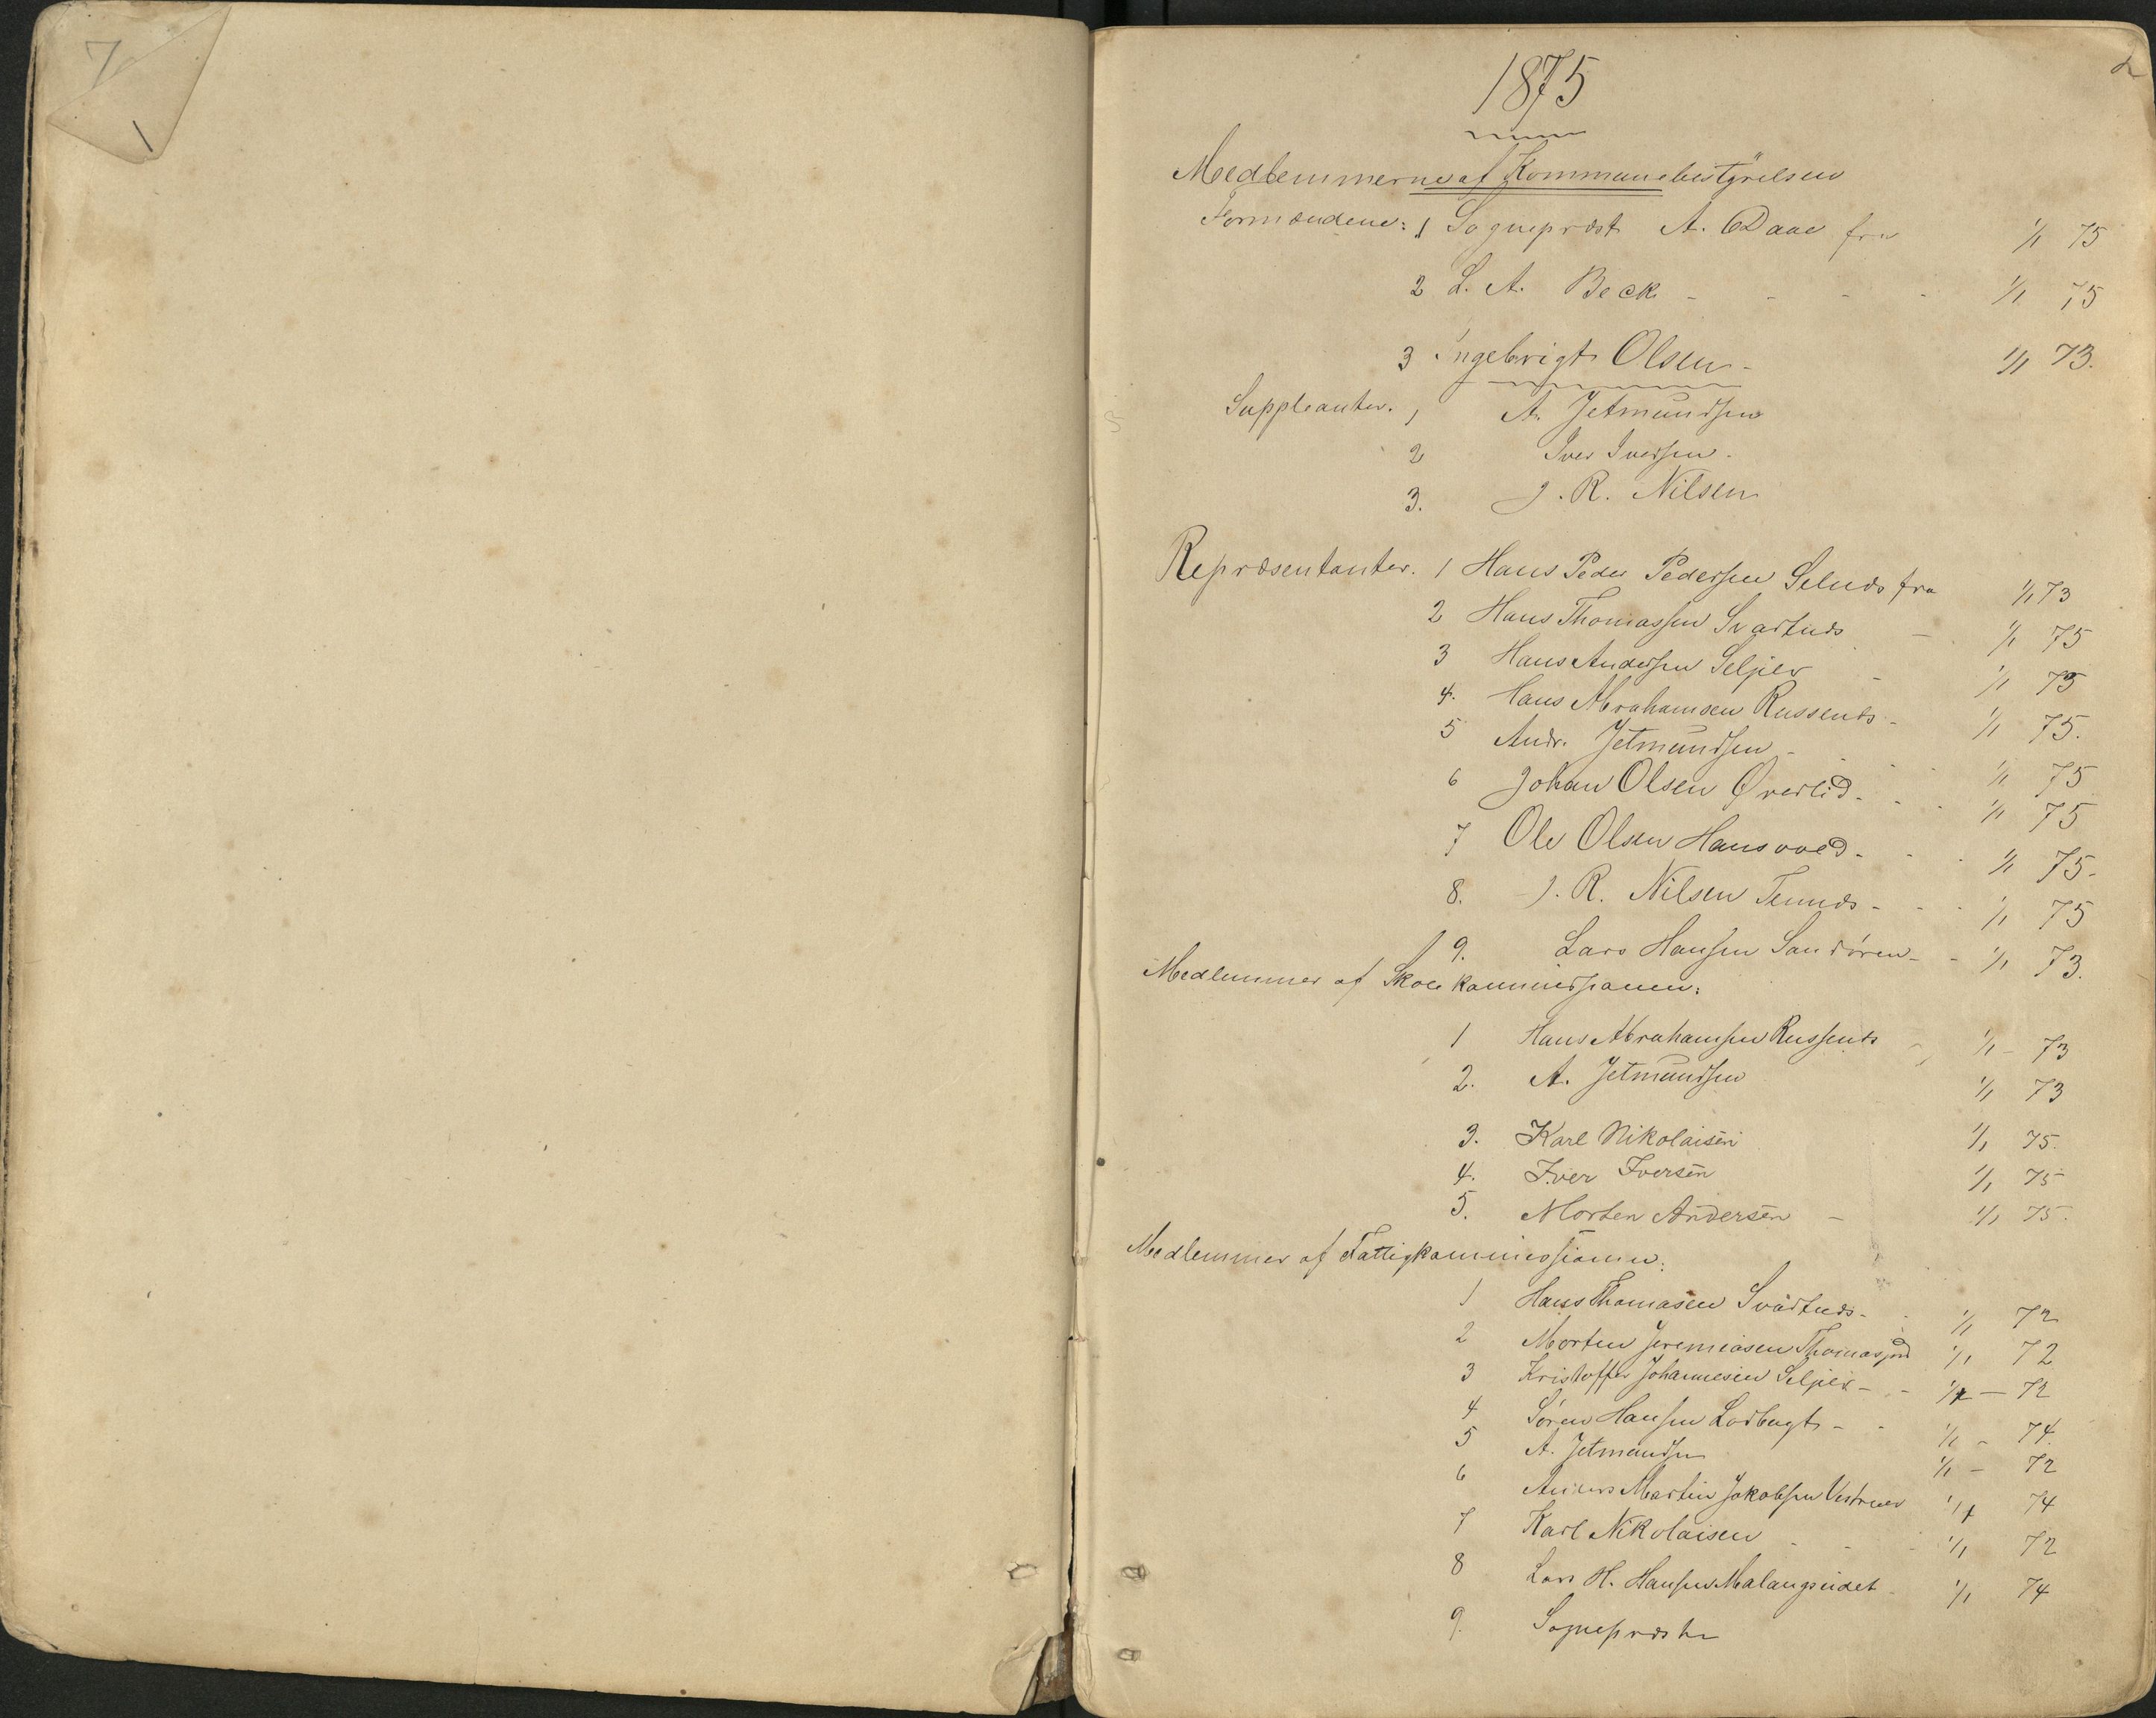 7
1
2
1875
Medlemmerne af Kommunebestÿrelsen
Formændene: 1 Sognepræst A. Daae fra 1/1 75
2 L. A. Beck - - - - 1/1 75
3 Ingebrigt Olsen - 1/1 73.
Suppleanter. 1 A. Jetmundsen
2 Iver Iversen.
3. J. R. Nilsen
Repræsentanter. 1 Hans Peder Pedersen Selnæs fra 1/1 73
2 Hans Thomassen Svartnæs - 1/1 75
3 Hans Andersen Seljev - 1/1 75
4. Hans Abrahamsen Russenæs - 1/1 75.
5 Andr. Jetmundsen - - - 1/1 75
6 Johan Olsen Øverlid - - - 1/1 75
7 Ole Olsen Hansvold - - - 1/1 75.
8. J. R. Nilsen Tennæs - - - 1/1 75
9. Lars Hansen Sandøren - - 1/1 73.
Medlemmer af Skolekommissionen:
1 Hans Abrahamsen Russenæs - 1/1 - 73
2. A. Jetmundsen 1/1 73
3. Karl Nikolaisen 1/1 75.
4. Iver Iversen 1/1 75
5. Morten Andersen - 1/1 75.
Medlemmer af Fattigkommissionen:
1 Hans Thomasen Svartnæs - - 1/1 72
2 Morten Jeremiasen Thomasjord 1/1 72
3 Kristoffer Johannesen Seljev - - 1/1 - 72
4 Søren Hansen Lodbugt - - 1/1 - 74.
5 A. Jetmundsen 1/1 - 72
6 Anders Martin Jakobsen Vestnes 1/1 74
7 Karl Nikolaisen - - - 1/1 72
8 Lars H. Hansen Malangseidet - 1/1 74
9. Sognepræsten